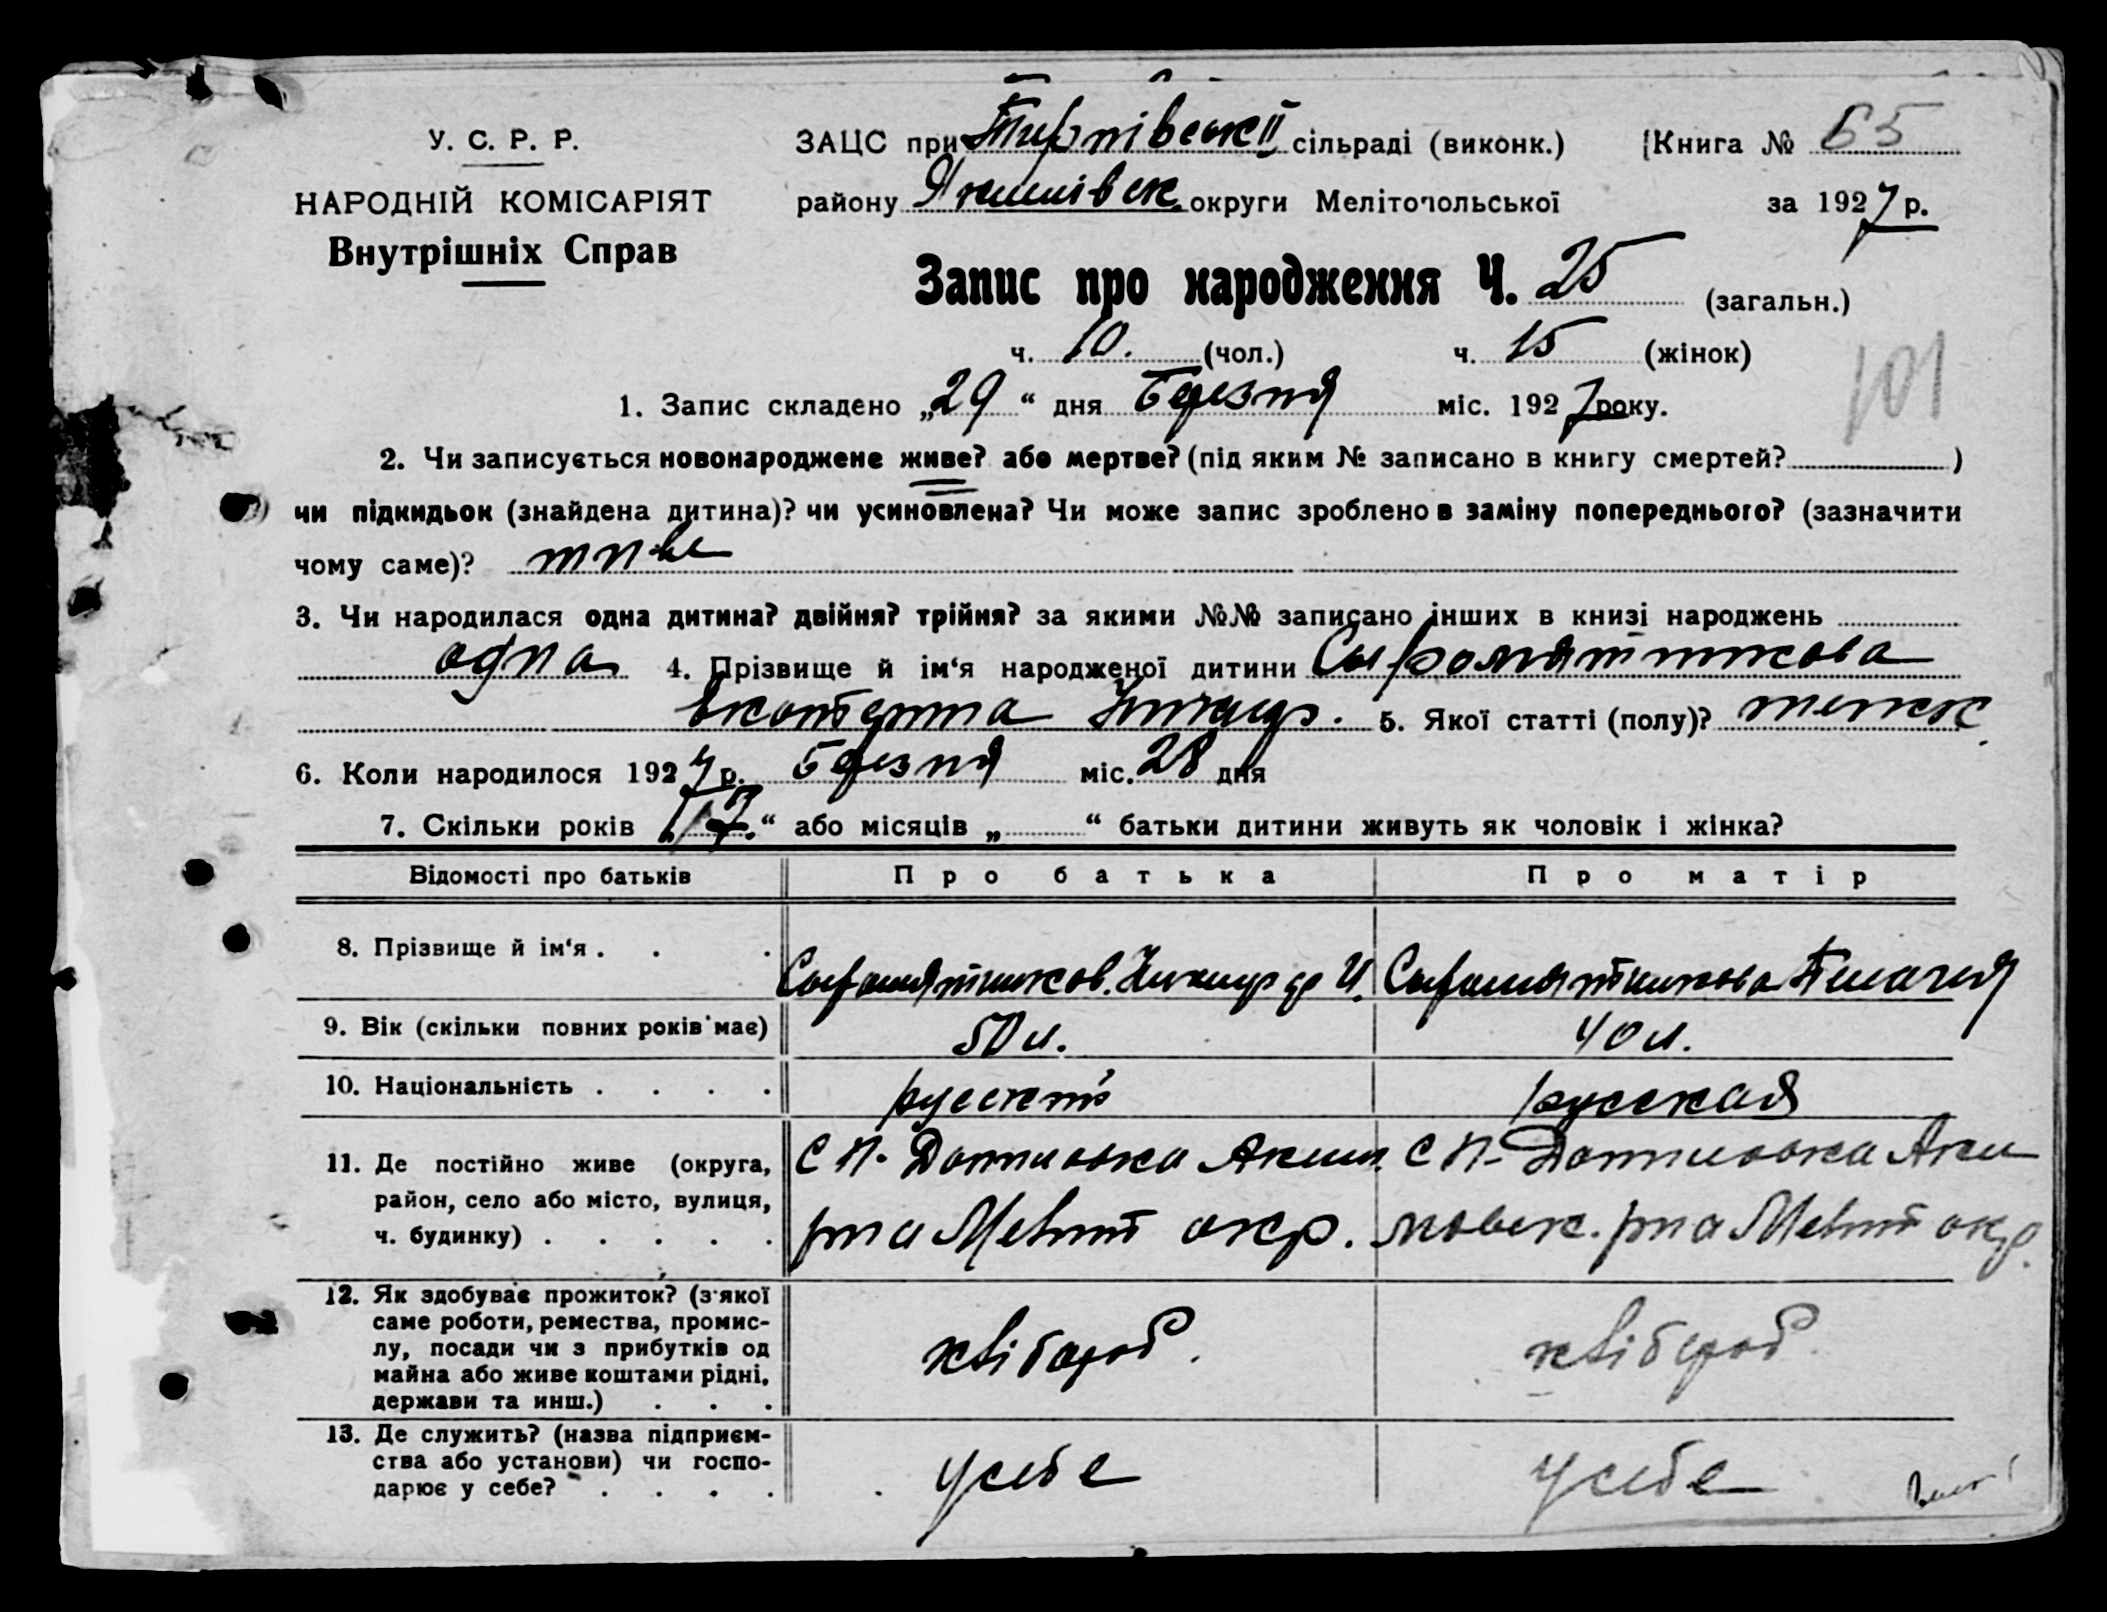 У. С. Р. Р.
НАРОДНІЙ КОМІСАРІЯТ
Внутрішніх Справ
ЗАЦС при Тирпівськ сільраді (виконк.) Книга № 65
району Якимівськ. округи Мелітопольської за 1927 р.
Запис про народження Ч. 25 (загальн.)
ч. 10. (чол.) ч. 15 (жінок)
101
1. Запис складено „29“ дня Березня міс. 1927 року.
2. Чи записується новонароджене живе? або мертве? (під яким № записано в книгу смертей? )
чи підкидьок (знайдена дитина)? чи усиновлена? Чи може запис зроблено в заміну попереднього? (зазначити
чому саме)?
3. Чи народилася одна дитина? двійня? трійня? за якими №№ записано інших в книзі народжень
одна 4. Прізвище й ім‘я народженої дитини Сыромятникова
Екатерина 5. Якої статті (полу)? женск.
6. Коли народилося 1927 р. Березня міс. 28 дня
7. Скільки років „17“ або місяців „ “ батьки дитини живуть як чоловік і жінка?
Відомості про батьків Про батька Про матір
8. Прізвище й ім‘я . . . Сыромятников. И. Сыромятникова Пелагия
9. Вік (скільки повних років має) 50 л. 40 л.
10. Національність . . . . русский русская
11. Де постійно живе (округа, С П- Даниловка Аким. С П- Даниловка Аки
район, село або місто, вулиця,
ч. будинку) . . . . . рна Меліт окр. мовск. рна Меліт окр.
12. Як здобуває прожиток? (з якої
саме роботи, ремества, промис-
лу, посади чи з прибутків од хлібороб. хлібороб.
майна або живе коштами рідні,
держави та инш.) . . .
13. Де служить? (назва підприєм-
ства або установи) чи госпо- у себе у себе
дарює у себе? . . . .